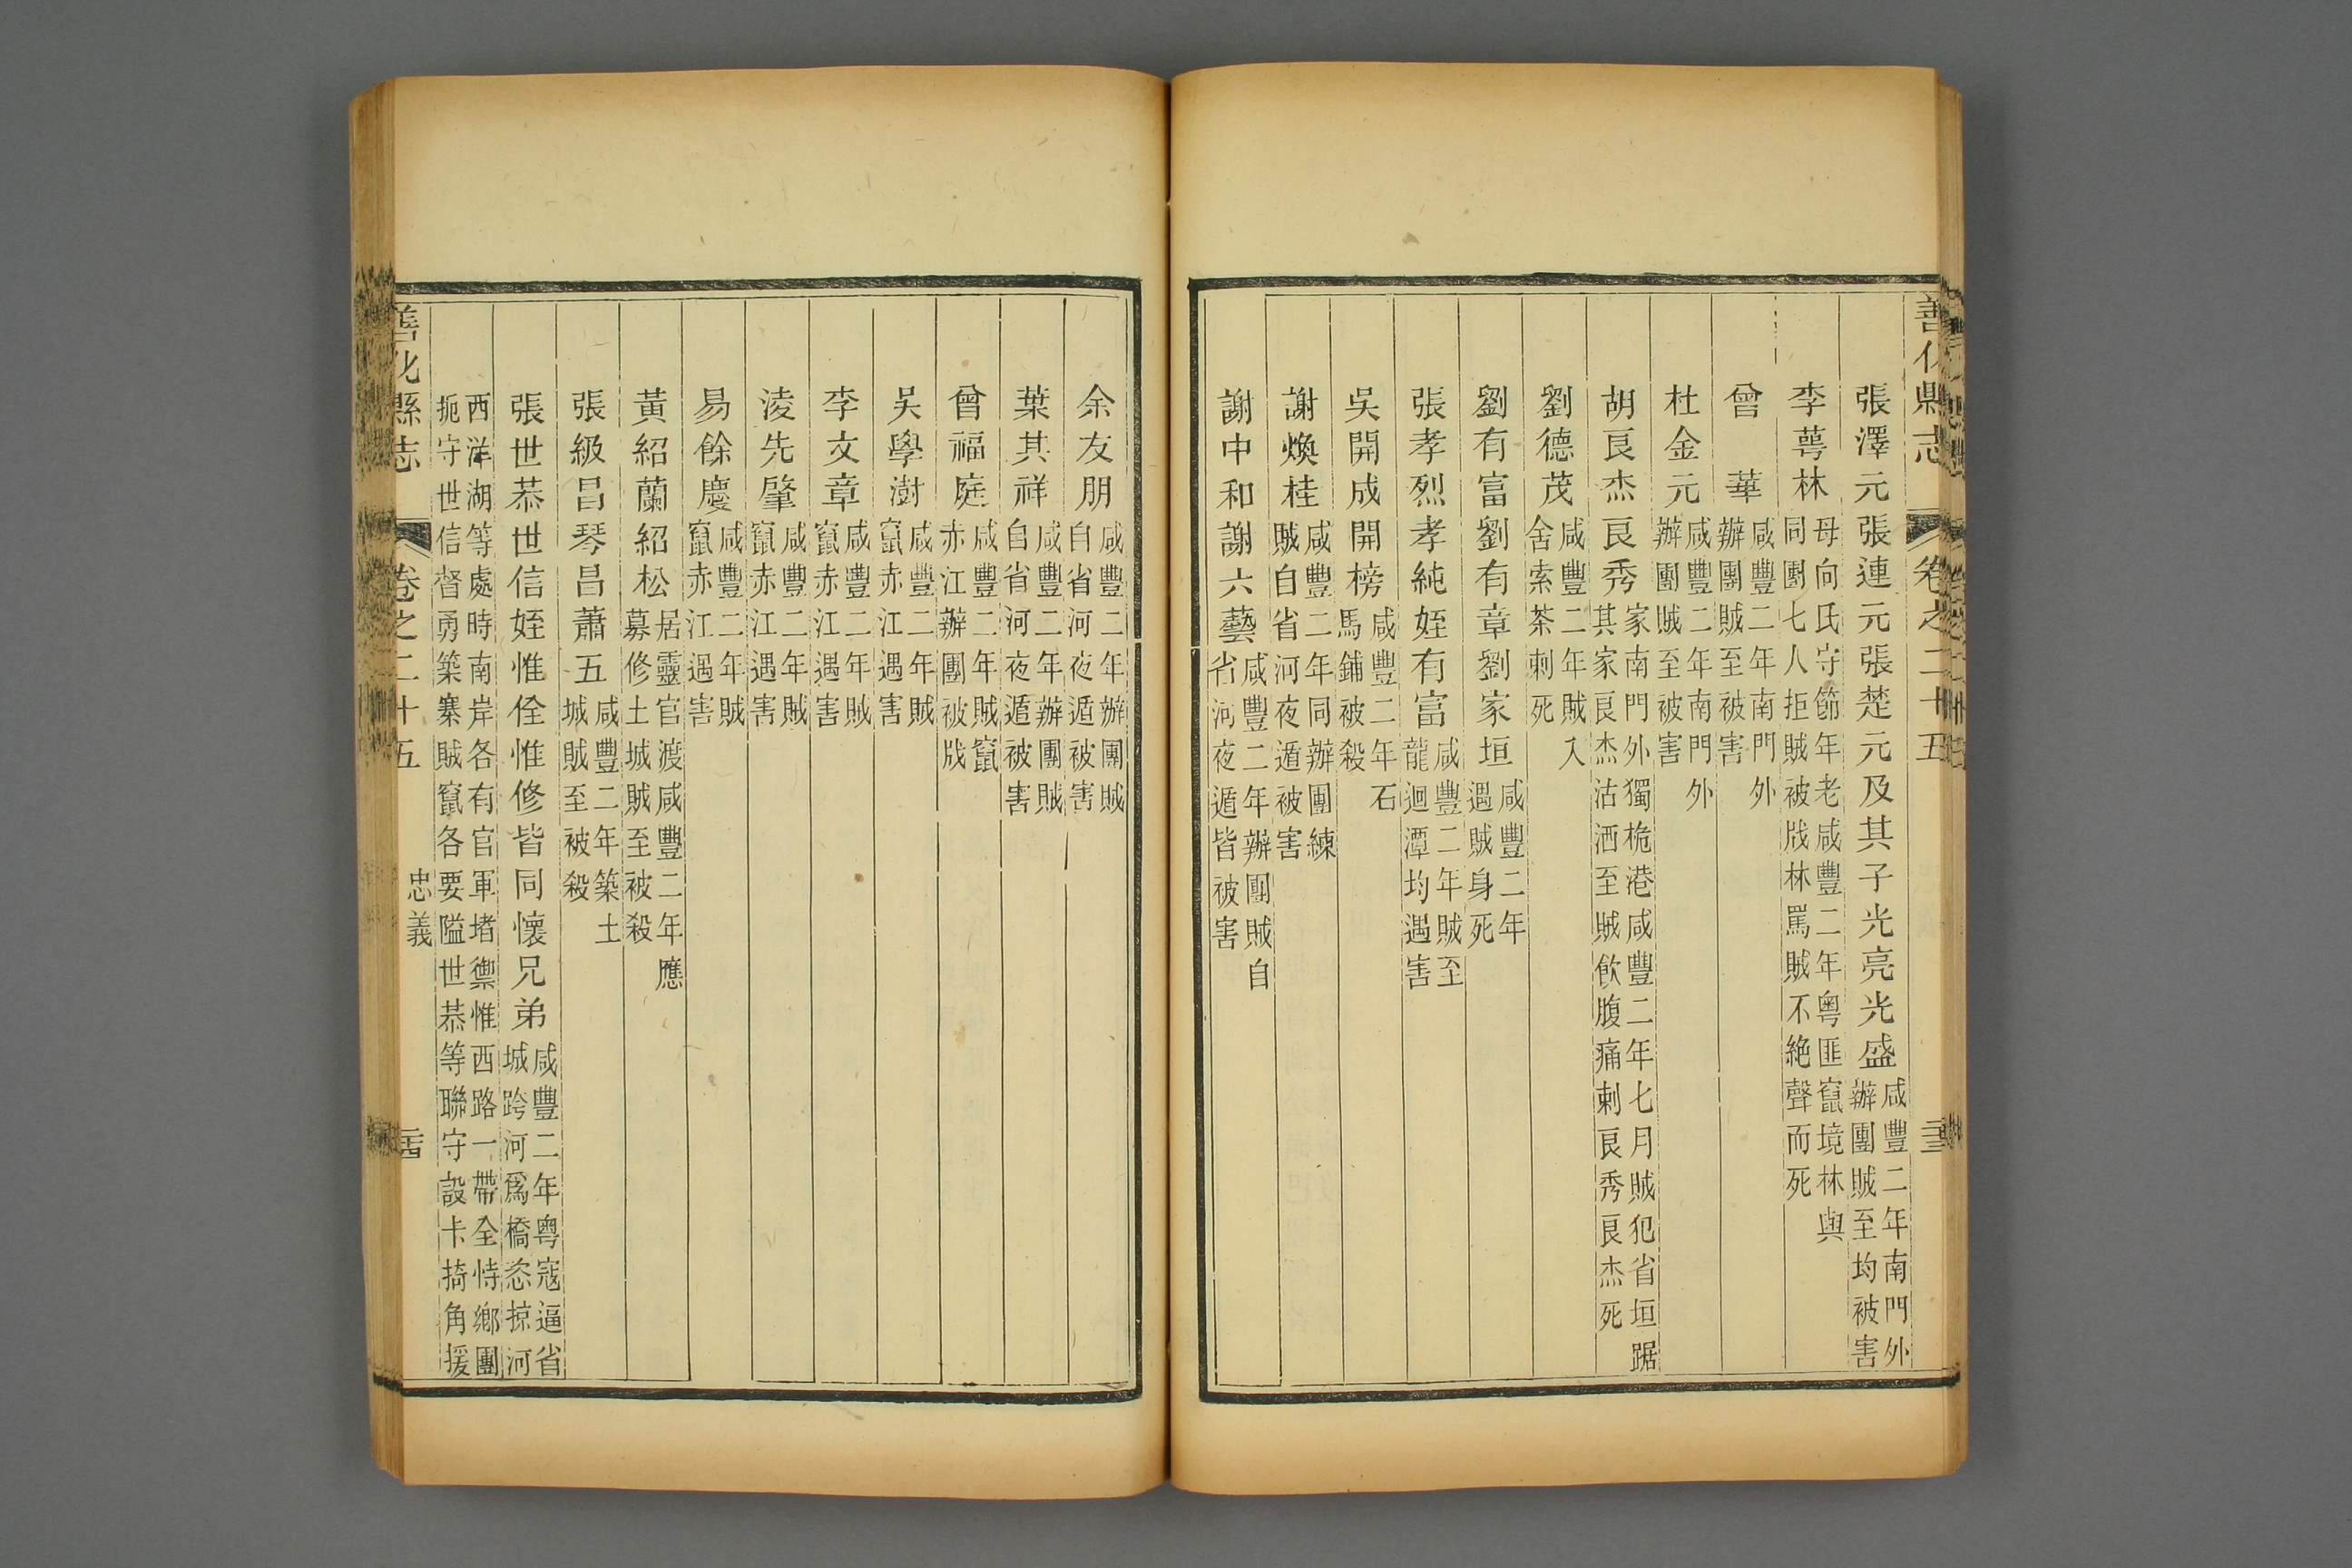 善化縣志 卷之二十五 二十三
張澤元張連元張楚元及其子光亮光盛咸豐二年南門外辦團賊至均被害
李蕚林母向氏守節年老咸豐二年粤匪竄境林與同團七人拒賊被戕林罵賊不絶聲而死
曾華咸豐二年南門外辦團賊至被害
杜金元咸豐二年南門外辦團賊至被害
胡良杰良秀家南門外獨桅港咸豐二年七月賊犯省垣踞其家良杰沽酒至賊飲腹痛刺良秀良杰死
劉德茂咸豐二年賊入舍索茶刺死
劉有富劉有章劉家垣咸豐二年遇賊身死
張孝烈孝純姪有富咸豐二年賊至龍迴潭均遇害
吳開成開榜咸豐二年石馬鋪被殺
謝煥桂咸豐二年同辦團練賊自省河夜遁被害
謝中和謝六藝咸豐二年辦團賊自省河夜遁皆被害
余友朋咸豐二年辦團賊自省河夜遁被害
葉其祥咸豐二年辦團賊自省河夜遁被害
曾福庭咸豐二年賊竄赤江辦團被戕
吳學澍咸豐二年賊竄赤江遇害
李文章咸豐二年賊竄赤江遇害
淩先肇咸豐二年賊竄赤江遇害
易餘慶咸豐二年賊竄赤江遇害
黃紹蘭紹松居靈官渡咸豐二年應募修土城賊至被殺
張級昌琴昌蕭五咸豐二年築土城賊至被殺
張世恭世信姪惟佺惟修皆同懷兄弟咸豐二年粤寇逼省城跨河爲橋恣掠河
西洋湖等處時南岸各有官軍堵禦惟西路一帶全恃鄉團扼守世信督勇築寨賊竄各要隘世恭等聯守設卡掎角援
善化縣志 卷之二十五 忠義 二十四